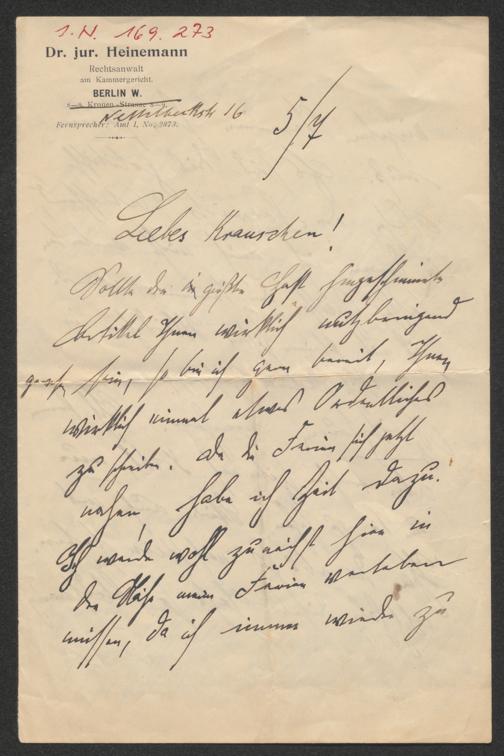 I.N. 169.273
Dr. jur. Heinemann
Rechtsanwalt
am Kammergericht.
BERLIN W.
Kronen-Strasse
Nettelbeckstr 16
Fernsprecher: Amt I, No. 2873.
5/7
Liebes Krauschen!
Sollte der in größter Hast hingeschmierte
Artikel Ihnen wirklich nutzbringend
gewesen sein, so bin ich gern bereit, Ihnen
wirklich einmal etwas Ordentliches
zu schreiben. Da die Ferien sich jetzt
nahen, habe ich Zeit dazu.
Ich werde wohl zunächst hier in
der Nähe meine Ferien verleben
müssen, da ich immer wieder zu